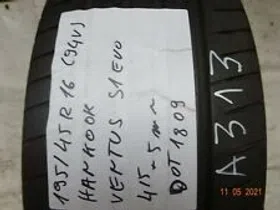 195/45R16 (84V)
HANKOOK
VENTUS S1 EVO
4,5-5mm
DOT 1809
A313
11 05 2021